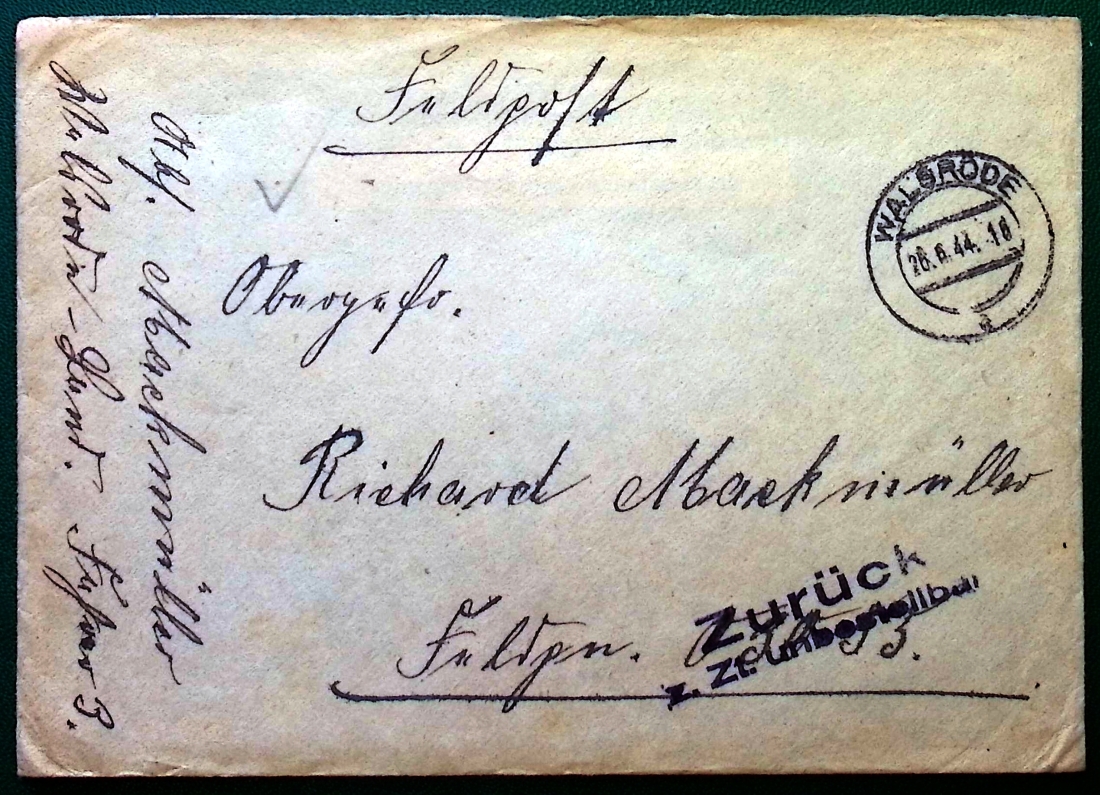 Feldpost
WALSRODE
26.6.44.-18
a
Obergefr.
Richard Mackmüller
Feldpn. 3.
Zurück
z. Zt. unbestellbar
Abs. Mackmüller
Walsrode-Land.